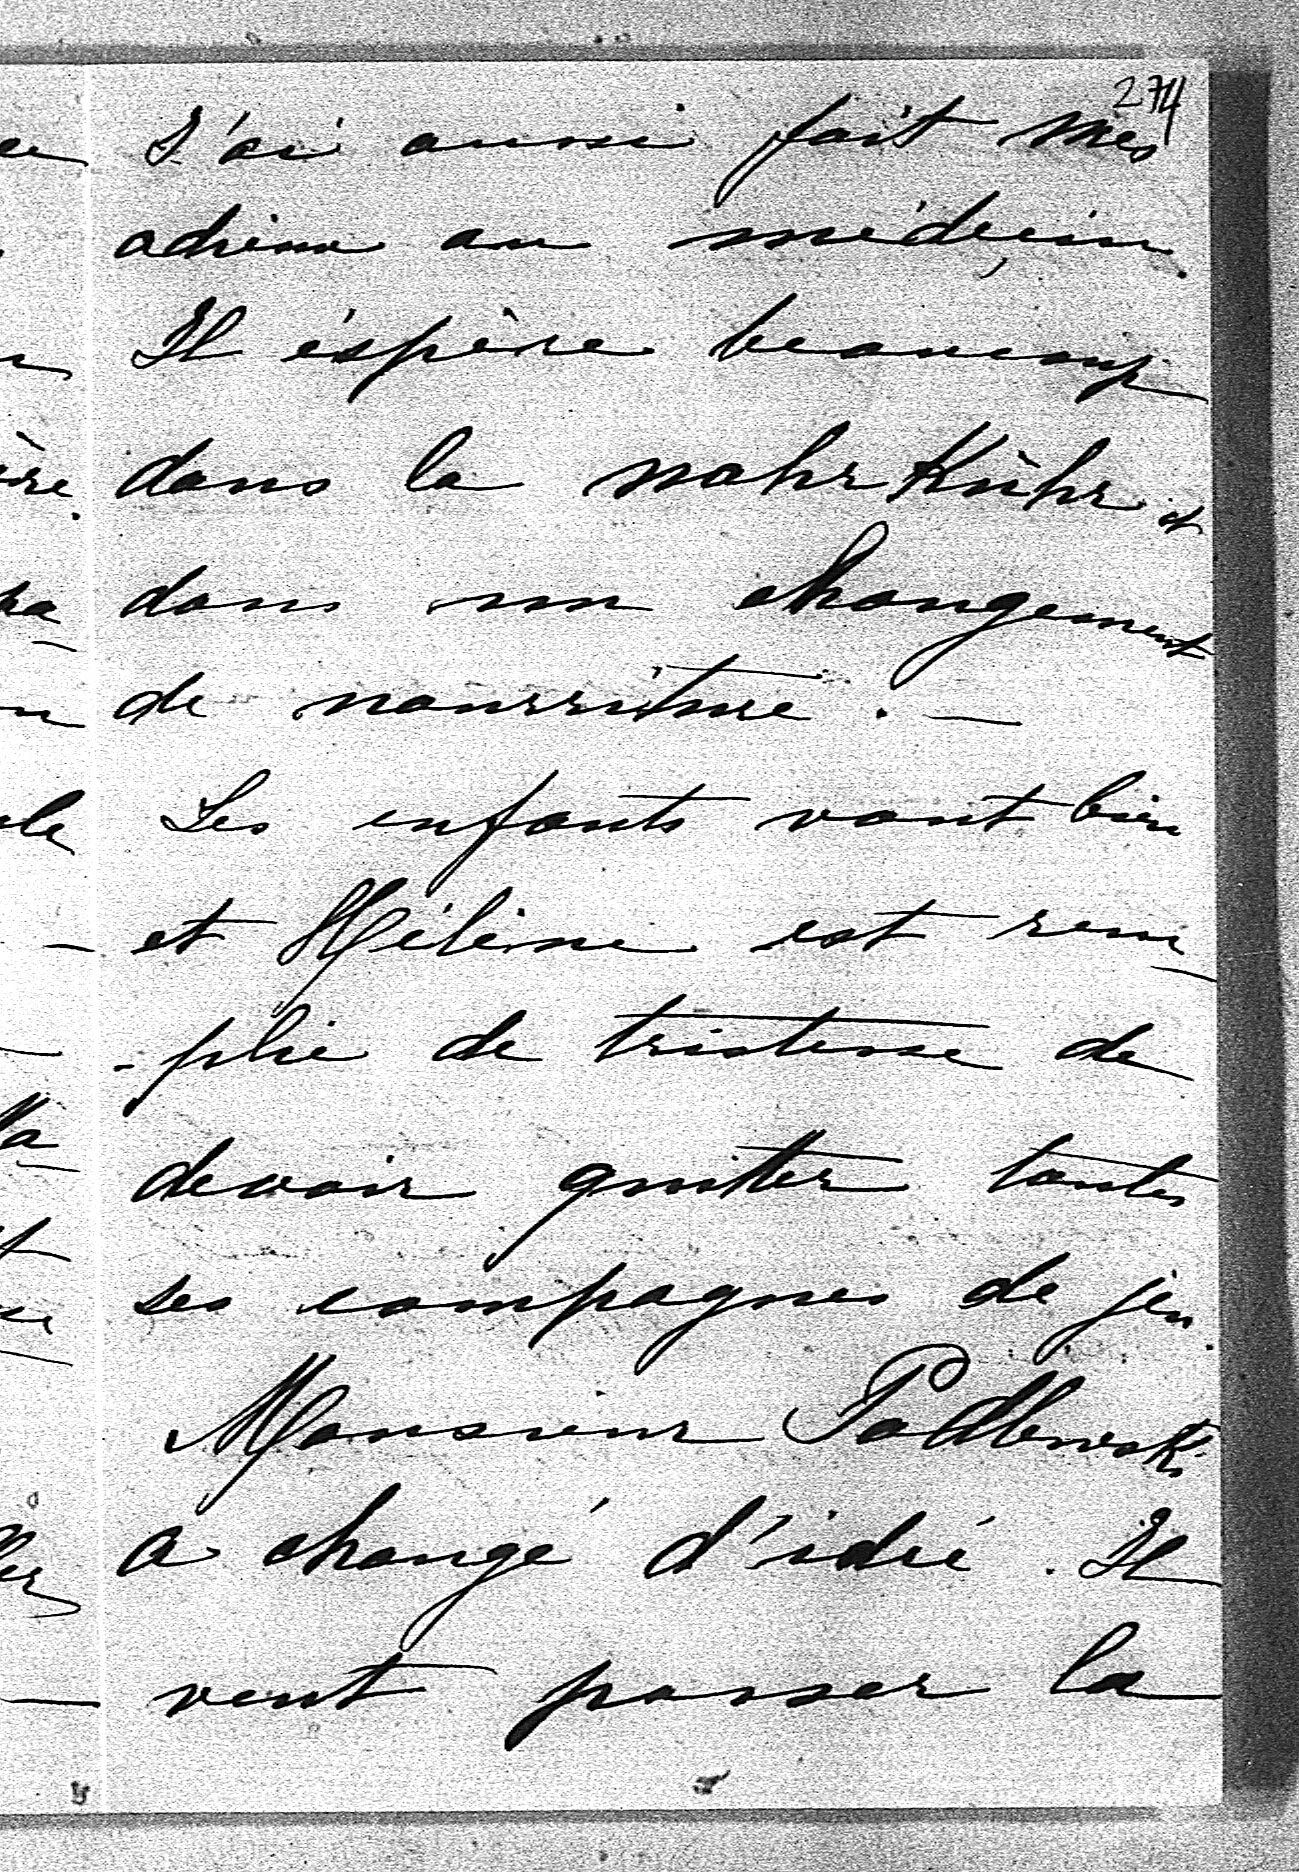 274
J'ai aussi fait mes
adieux au médecin.
Il éspère beaucoup
dans la nahrKühr et
dans un changement
de nourriture. —
Les enfants vont bien
et Hélène est rem
-plie de tristesse de
devoir quitter toutes
ses compagnes de jeu.
Monsieur Padlewski
a changé d'idée. Il
veut passer la